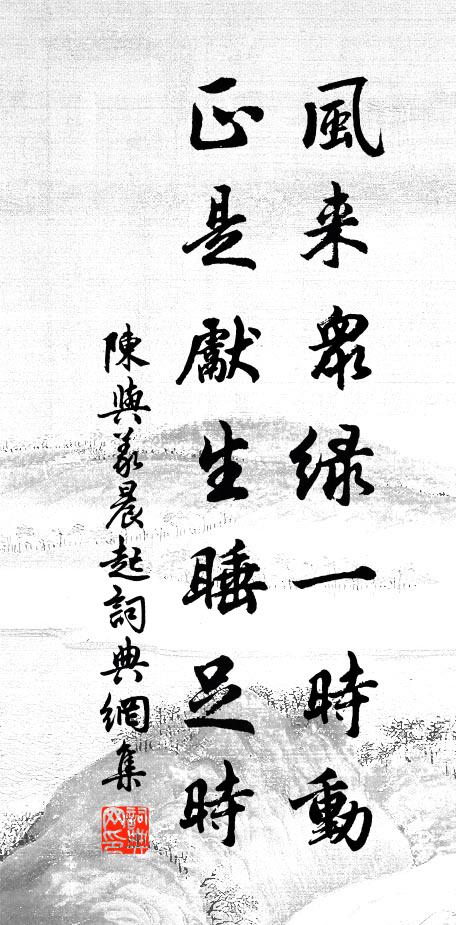 風来衆緑一時動
正是獻生睡足時
陳與義晨起詞典網集